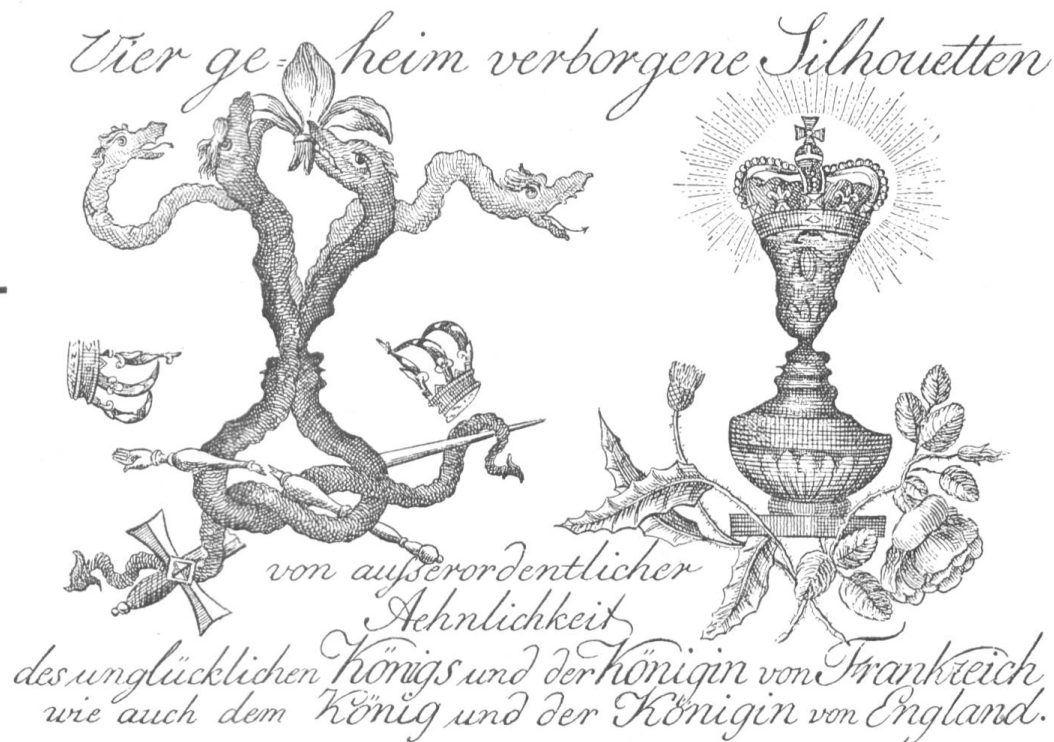 Vier ge= heim verborgene Silhouetten
von auſserordentlicher
Aehnlichkeit
des unglücklichen Königs und der Königin von Frankreich
wie auch dem König und der Königin von England.